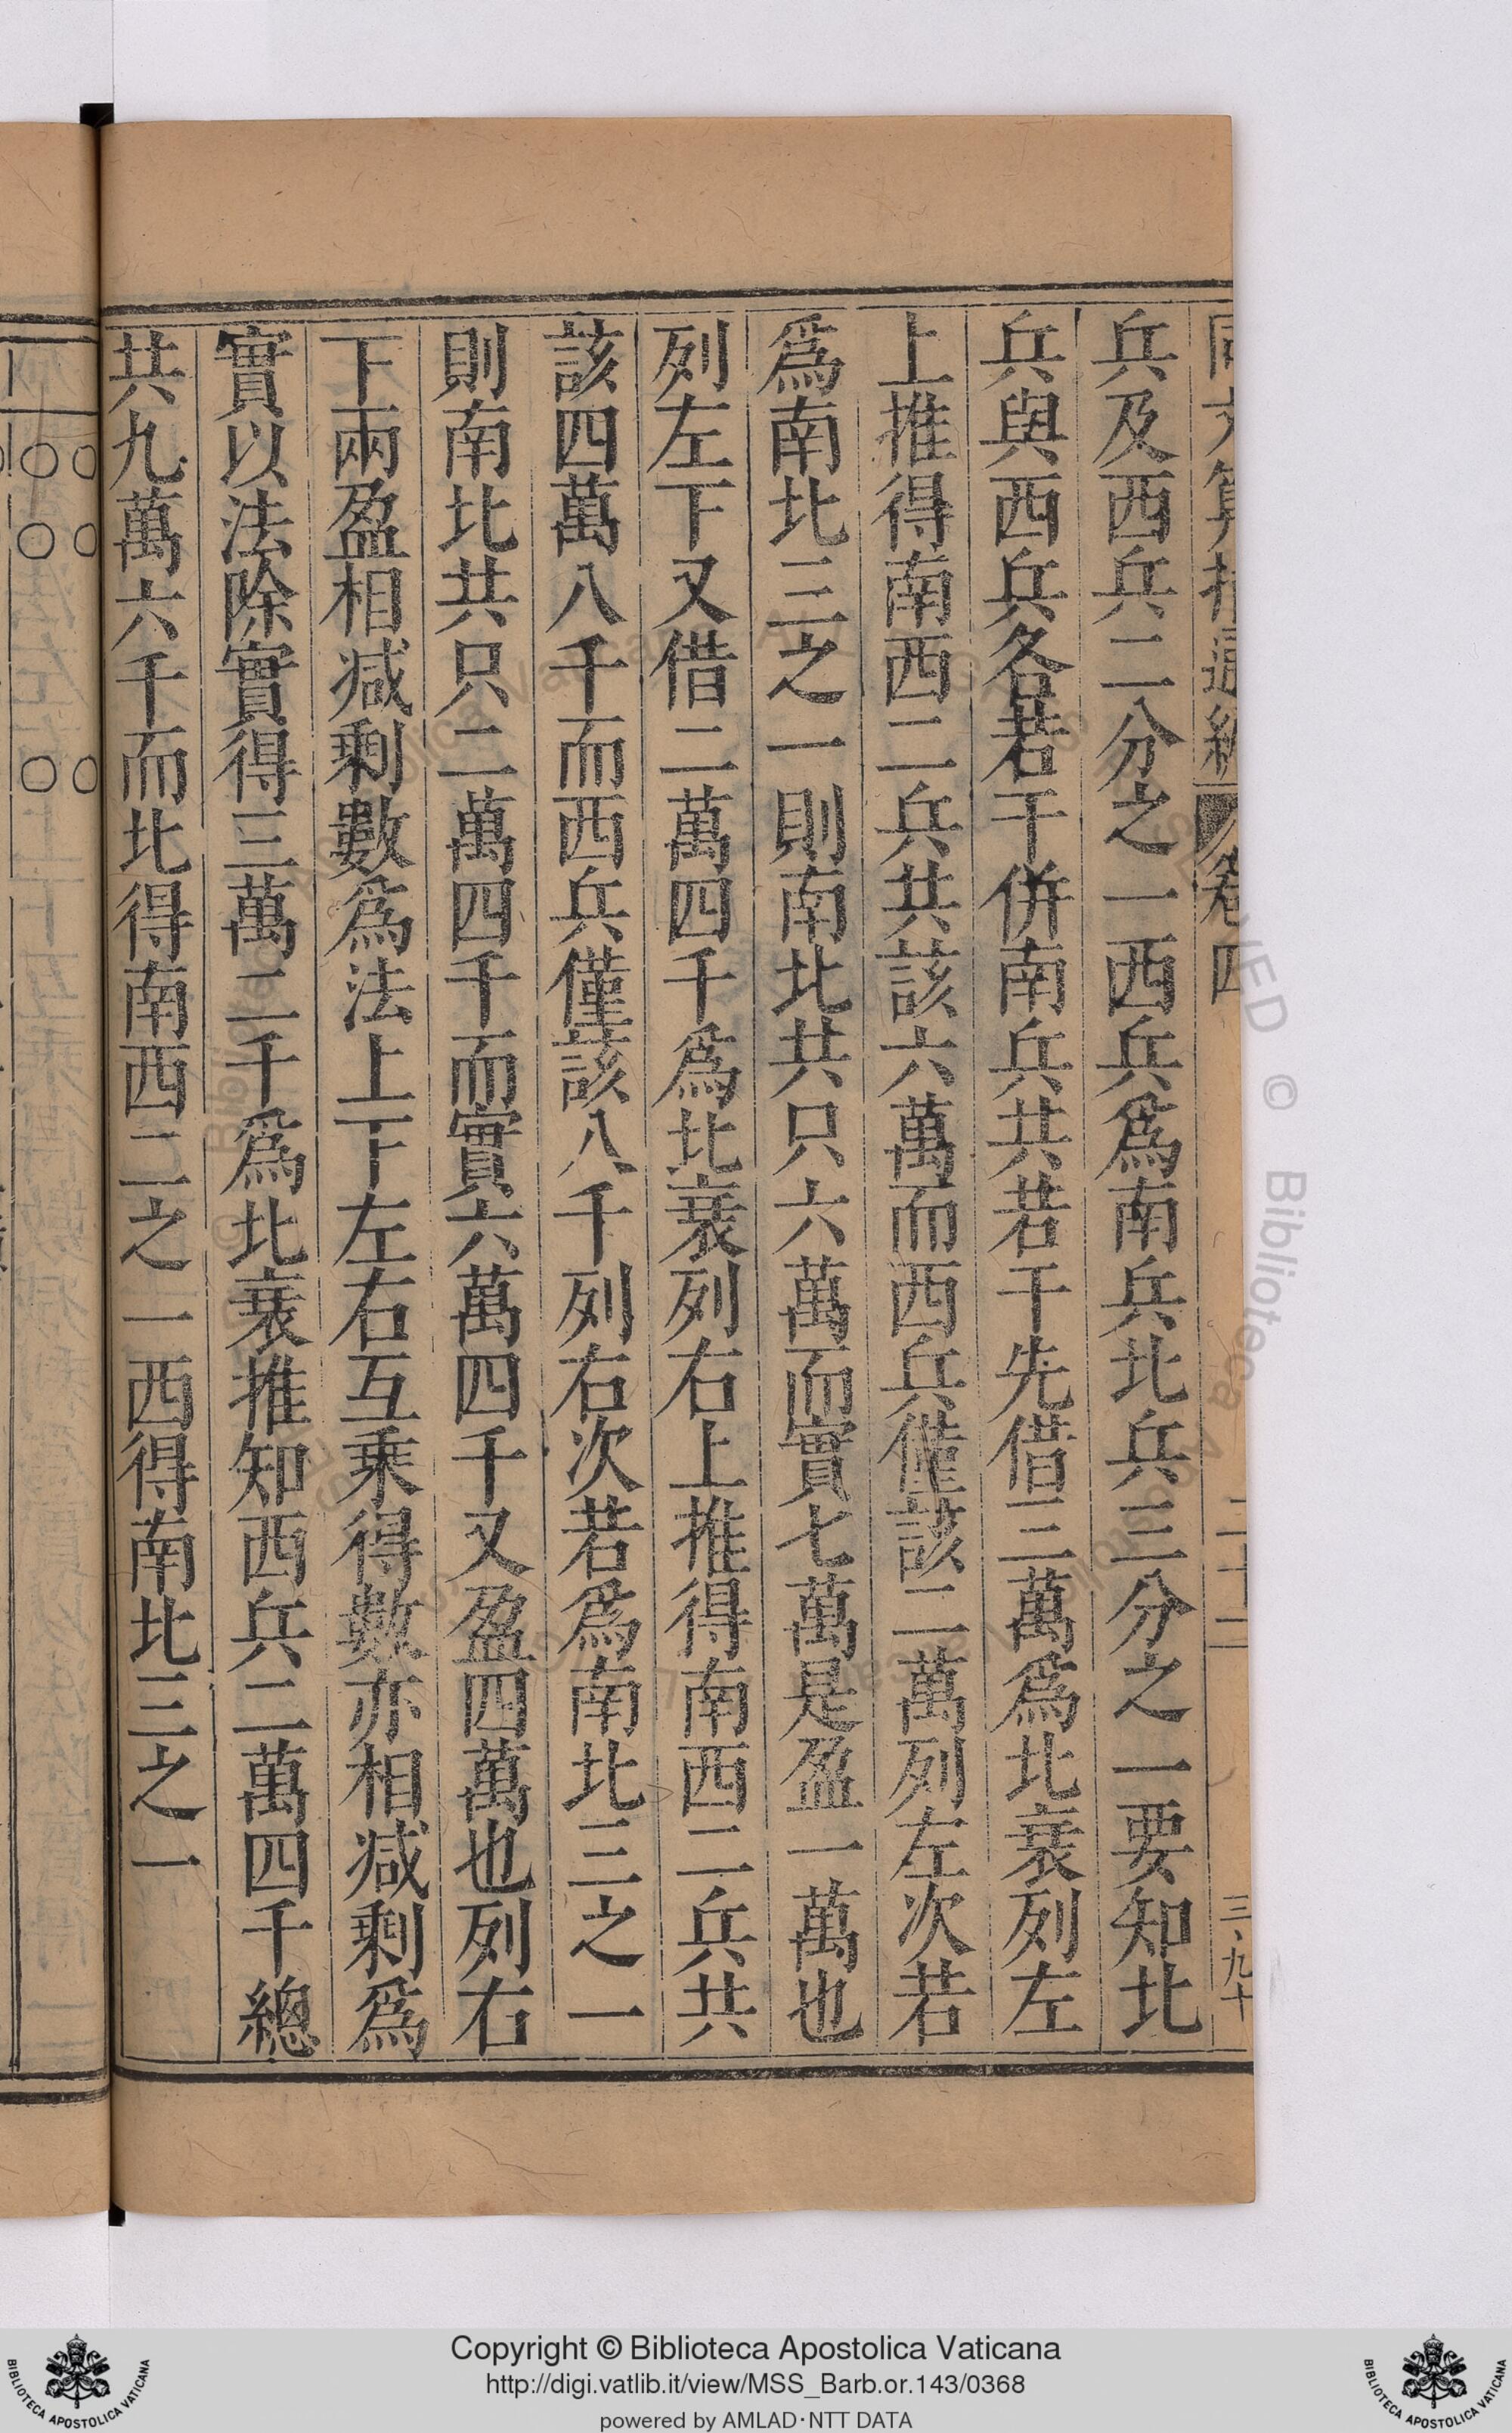 兵及西兵二分之一西兵爲南兵北兵三分之一要知北
兵與西兵各若干併南兵共若干先借三萬爲北衰列左
上推得南西二兵共該六萬而西兵僅該二萬列左次若
爲南北三之一則南北共只六萬而實七萬是盈一萬也
列左下又借二萬四千爲北衰列右上推得南西二兵共
該四萬八千而西兵僅該八千列右次若爲南北三之一
則南北共只二萬四千而實六萬四千又盈四萬也列右
下兩盈相減剩數爲法上下左右互乘得數亦相減剩爲
實以法除實得三萬二千爲北衰推知西兵二萬四千總
共九萬六千而北得南西二之一西得南北三之一
Copyright © Biblioteca Apostolica Vaticana
http://digi.vatlib.it/view/MSS_Barb.or.143/0368
powered by AMLAD·NTT DATA
BIBLIOTECA APOSTOLICA VATICANA
BIBLIOTECA APOSTOLICA VATICANA